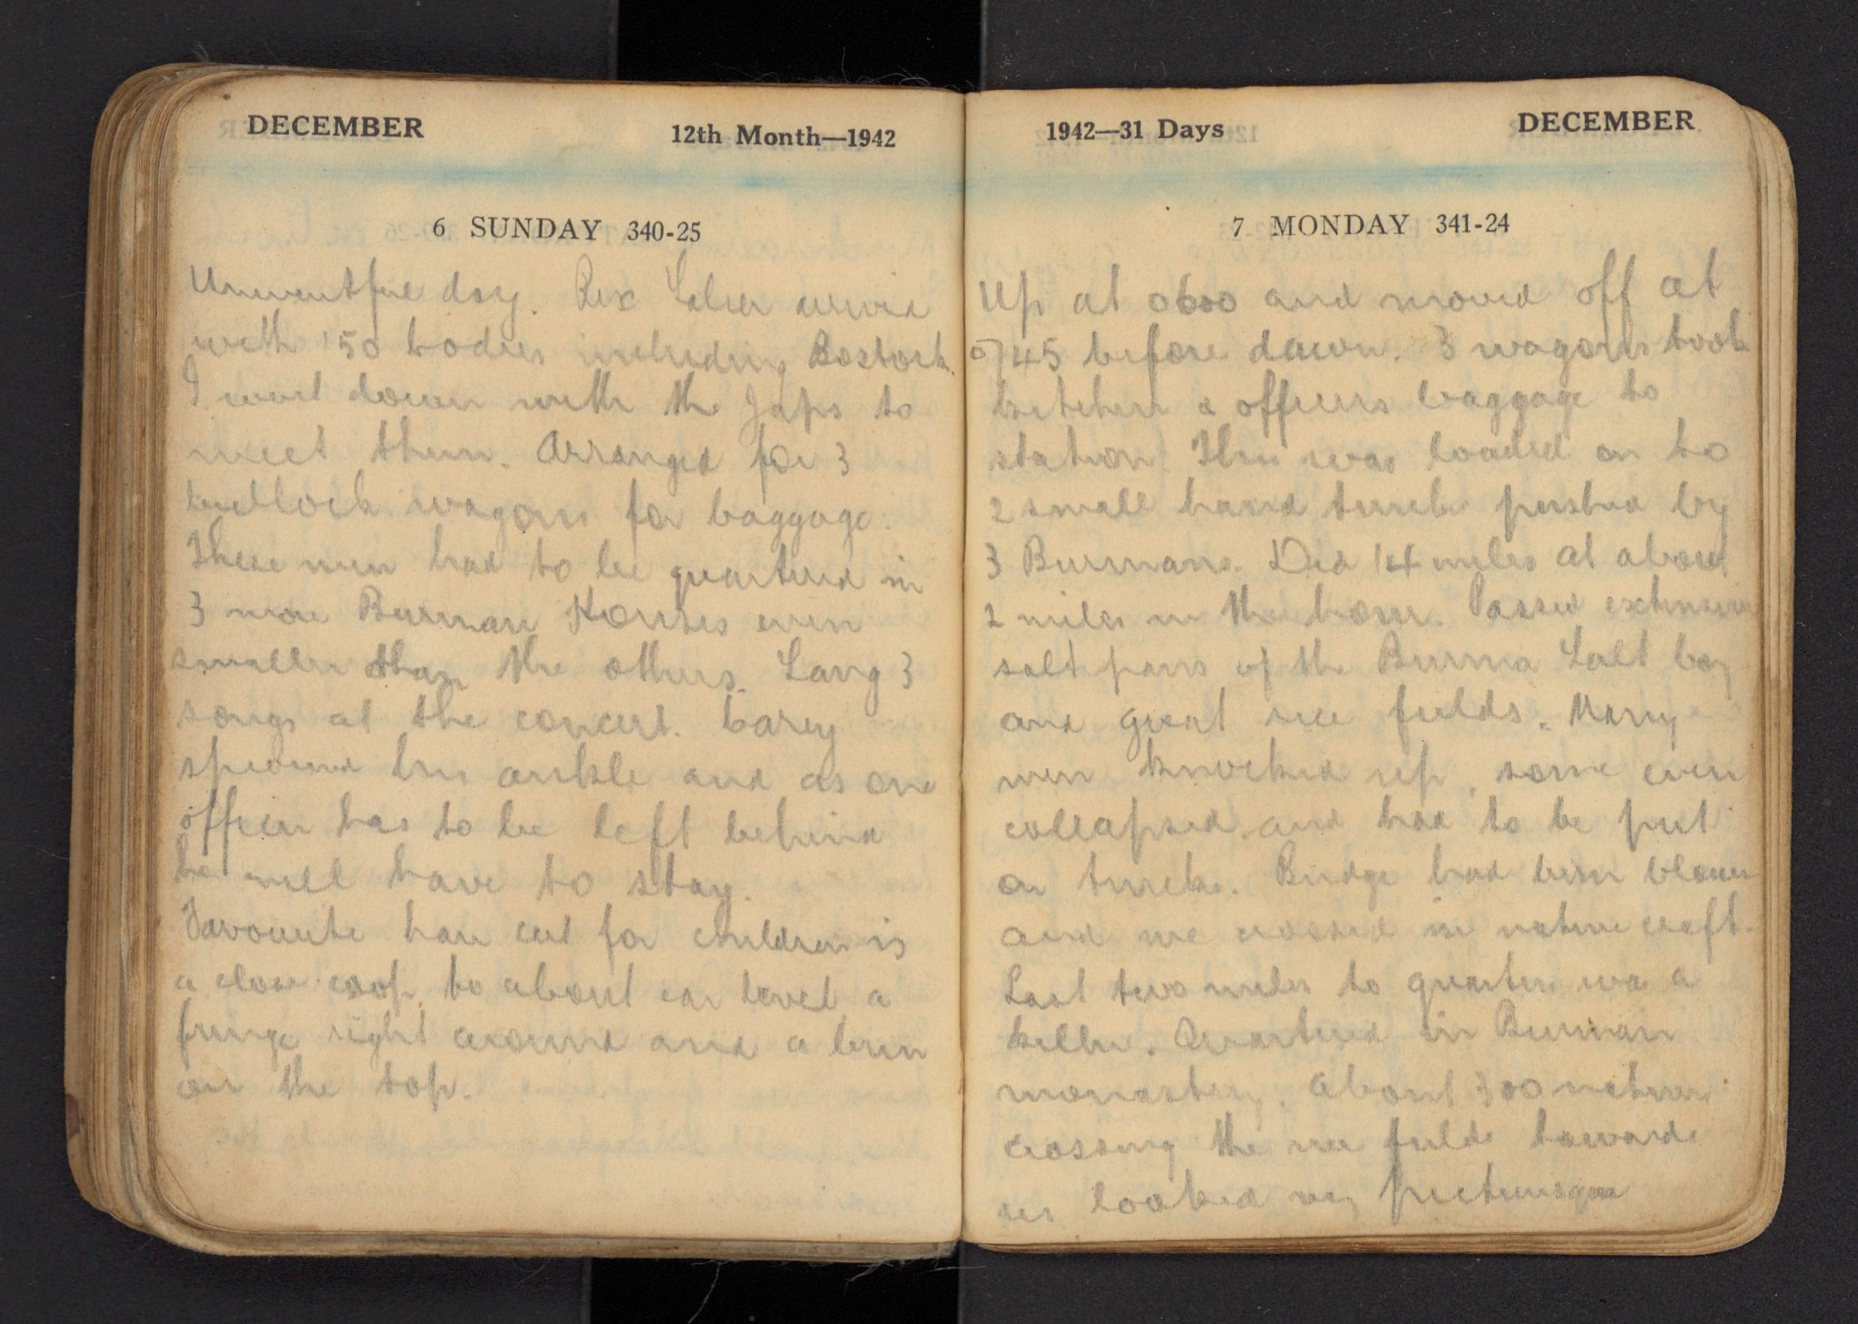 DECEMBER 12th Month—1942
6 SUNDAY 340-25
Uneventful day. Rex arrived
with 150 bodies including Bostock.
I went down with the Japs to
meet them. Arranged for 3
bullock wagons for baggage.
These men had to be quartered in
3 more Burman Houses even
smaller than the others. Sang 3
songs at the concert. Carey
sprained his ankle and as one
officer has to be left behind
he will have to stay.
Favourite hair cut for children is
a close crop to about ear level a
fringe right around and a bun
on the top.
1942—31 Days DECEMBER
7 MONDAY 341-24
Up at 0600 and moved off at
0745 before dawn. 3 wagons took
kitchen & officers baggage to
station. This was loaded on to
2 small hand trucks pushed by
3 Burmans. Did 14 miles at about
2 miles in the hour. Passed extensive
salt pans of the Burma Salt Coy
and great rice fields. Many
men knocked up, some even
collapsed and had to be put
on trucks. Bridge had been blown
and we crossed in native craft.
Last two miles to quarters was a
killer. Quartered in Burman
monastery. About 300 natives
crossing the rice fields towards
us looked very picturesque